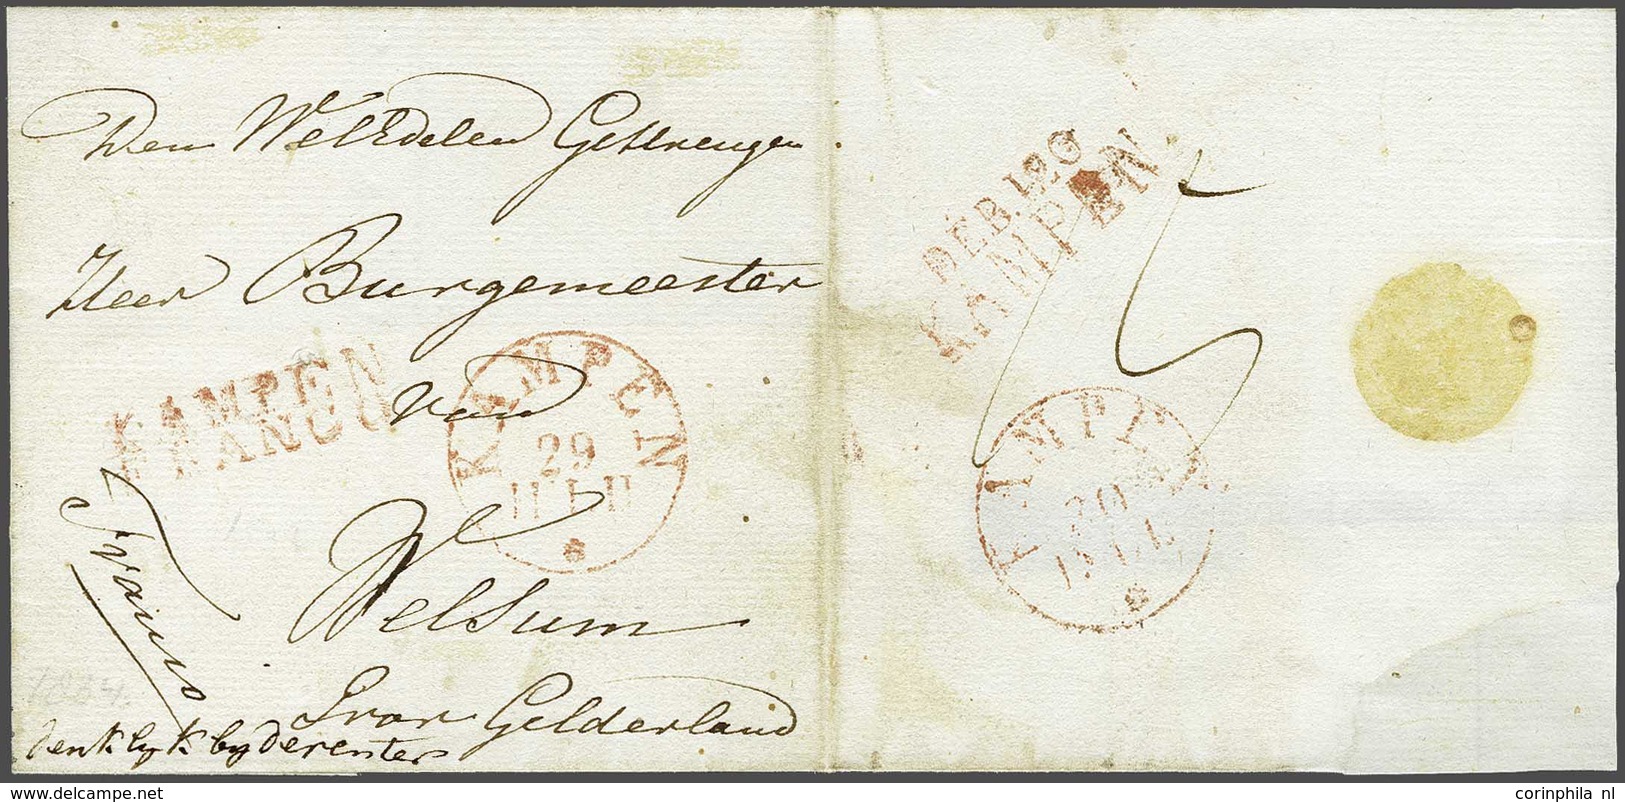 Den WelEdelen Gestrengen
Heer Burgemeester
van
Welsum
Prov Gelderland
denklyk by Deventer
Franco
KAMPEN
FRANCO
KAMPEN
29
JULIJ
1834.
DEB. 120
KAMPEN
KAMPEN
JULIJ
www.delcampe.net
corinphila nl